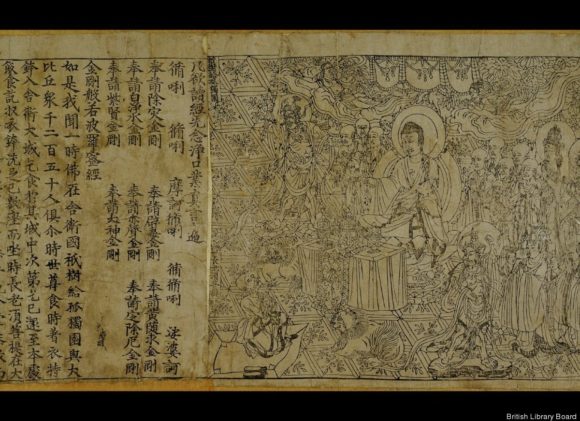 凡欲讀經先念淨口業真言遍
脩唎 脩唎 摩訶脩唎 脩脩唎 娑婆訶
奉請除灾金剛 奉請辟毒金剛 奉請黃隨求金剛
奉請白淨水金剛 奉請赤聲金剛 奉請定除厄金剛
奉請紫賢金剛 奉請大神金剛
金剛般若波羅蜜經
如是我聞一時佛在舍衛國祇樹給孤獨園與大
比丘眾千二百五十人俱尒時世尊食時著衣持
鉢入舍衛大城乞食於其城中次第乞已還至本處
飯食訖收衣鉢洗足已敷座而坐時長老須菩提在大
British Library Board